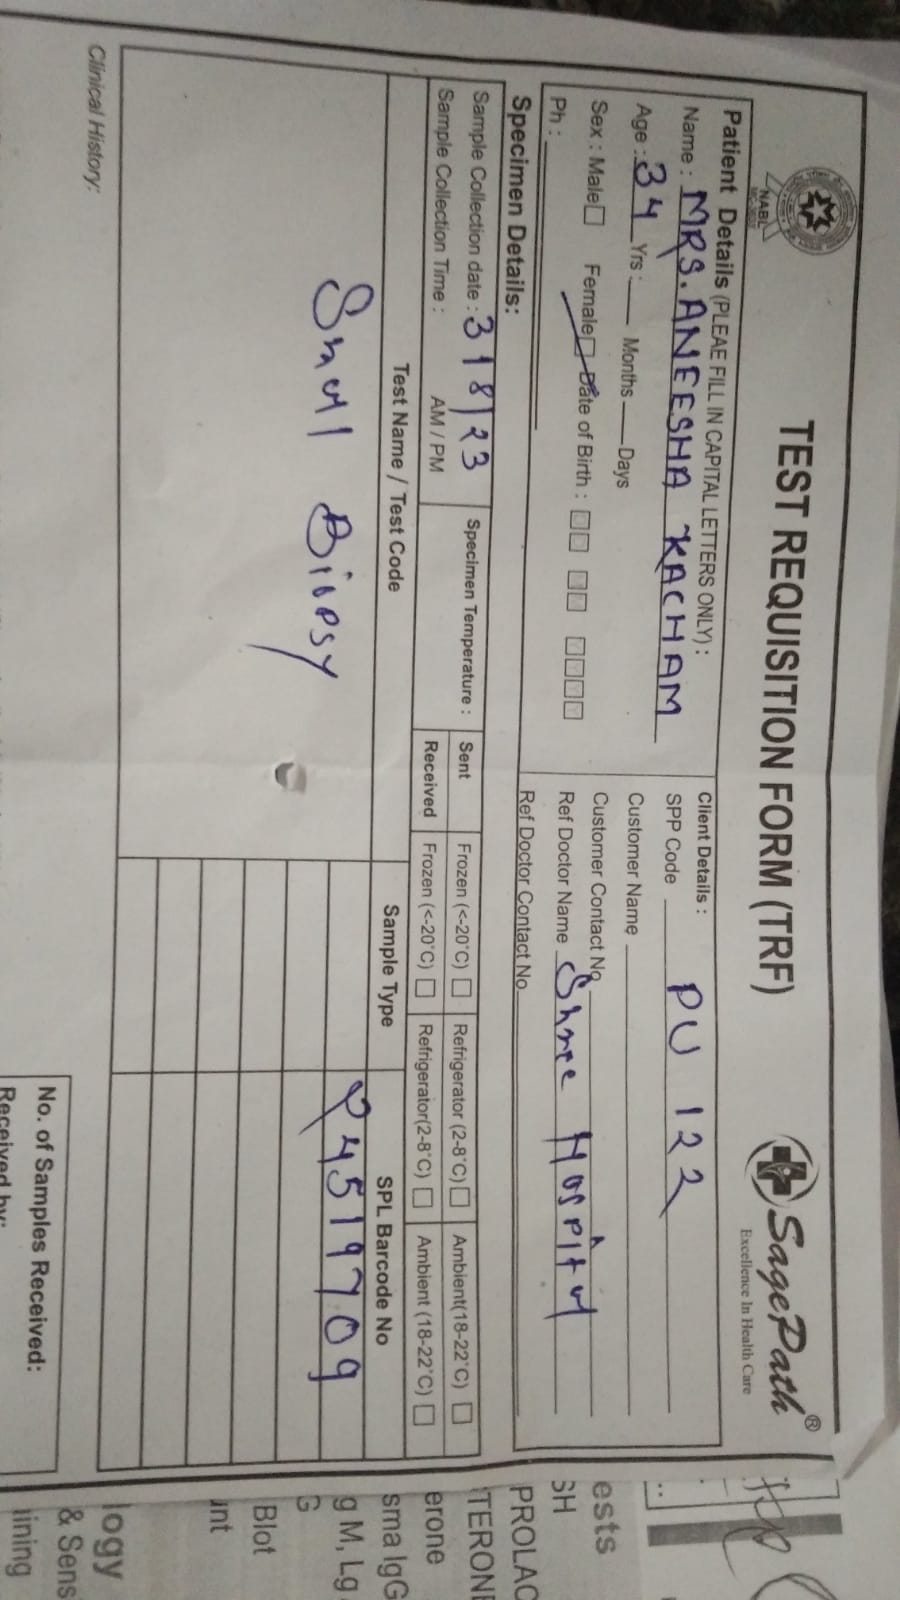 TEST REQUISITION FORM (TRF)
NABL
SagePath®
Excellence In Health Care
Patient Details (PLEAE FILL IN CAPITAL LETTERS ONLY) :
Name : MRS. ANEESHA KACHAM
Age : 34 Yrs : Months Days
Sex : Male Female Date of Birth :
Ph :
Client Details :
SPP Code PU 122
Customer Name
Customer Contact No
Ref Doctor Name Shree Hospital
Ref Doctor Contact No
Specimen Details:
Sample Collection date : 3/8/23
Sample Collection Time : AM / PM
Specimen Temperature :
Sent Frozen (<-20°C) Refrigerator (2-8°C) Ambient(18-22°C)
Received Frozen (<-20°C) Refrigerator(2-8°C) Ambient (18-22°C)
Test Name / Test Code Sample Type SPL Barcode No
Small Biopsy
Clinical History:
No. of Samples Received:
Received by:
ests
SH
PROLAC
TERON
erone
sma IgG
g M, Lg
G
Blot
unt
logy
& Sens
ining